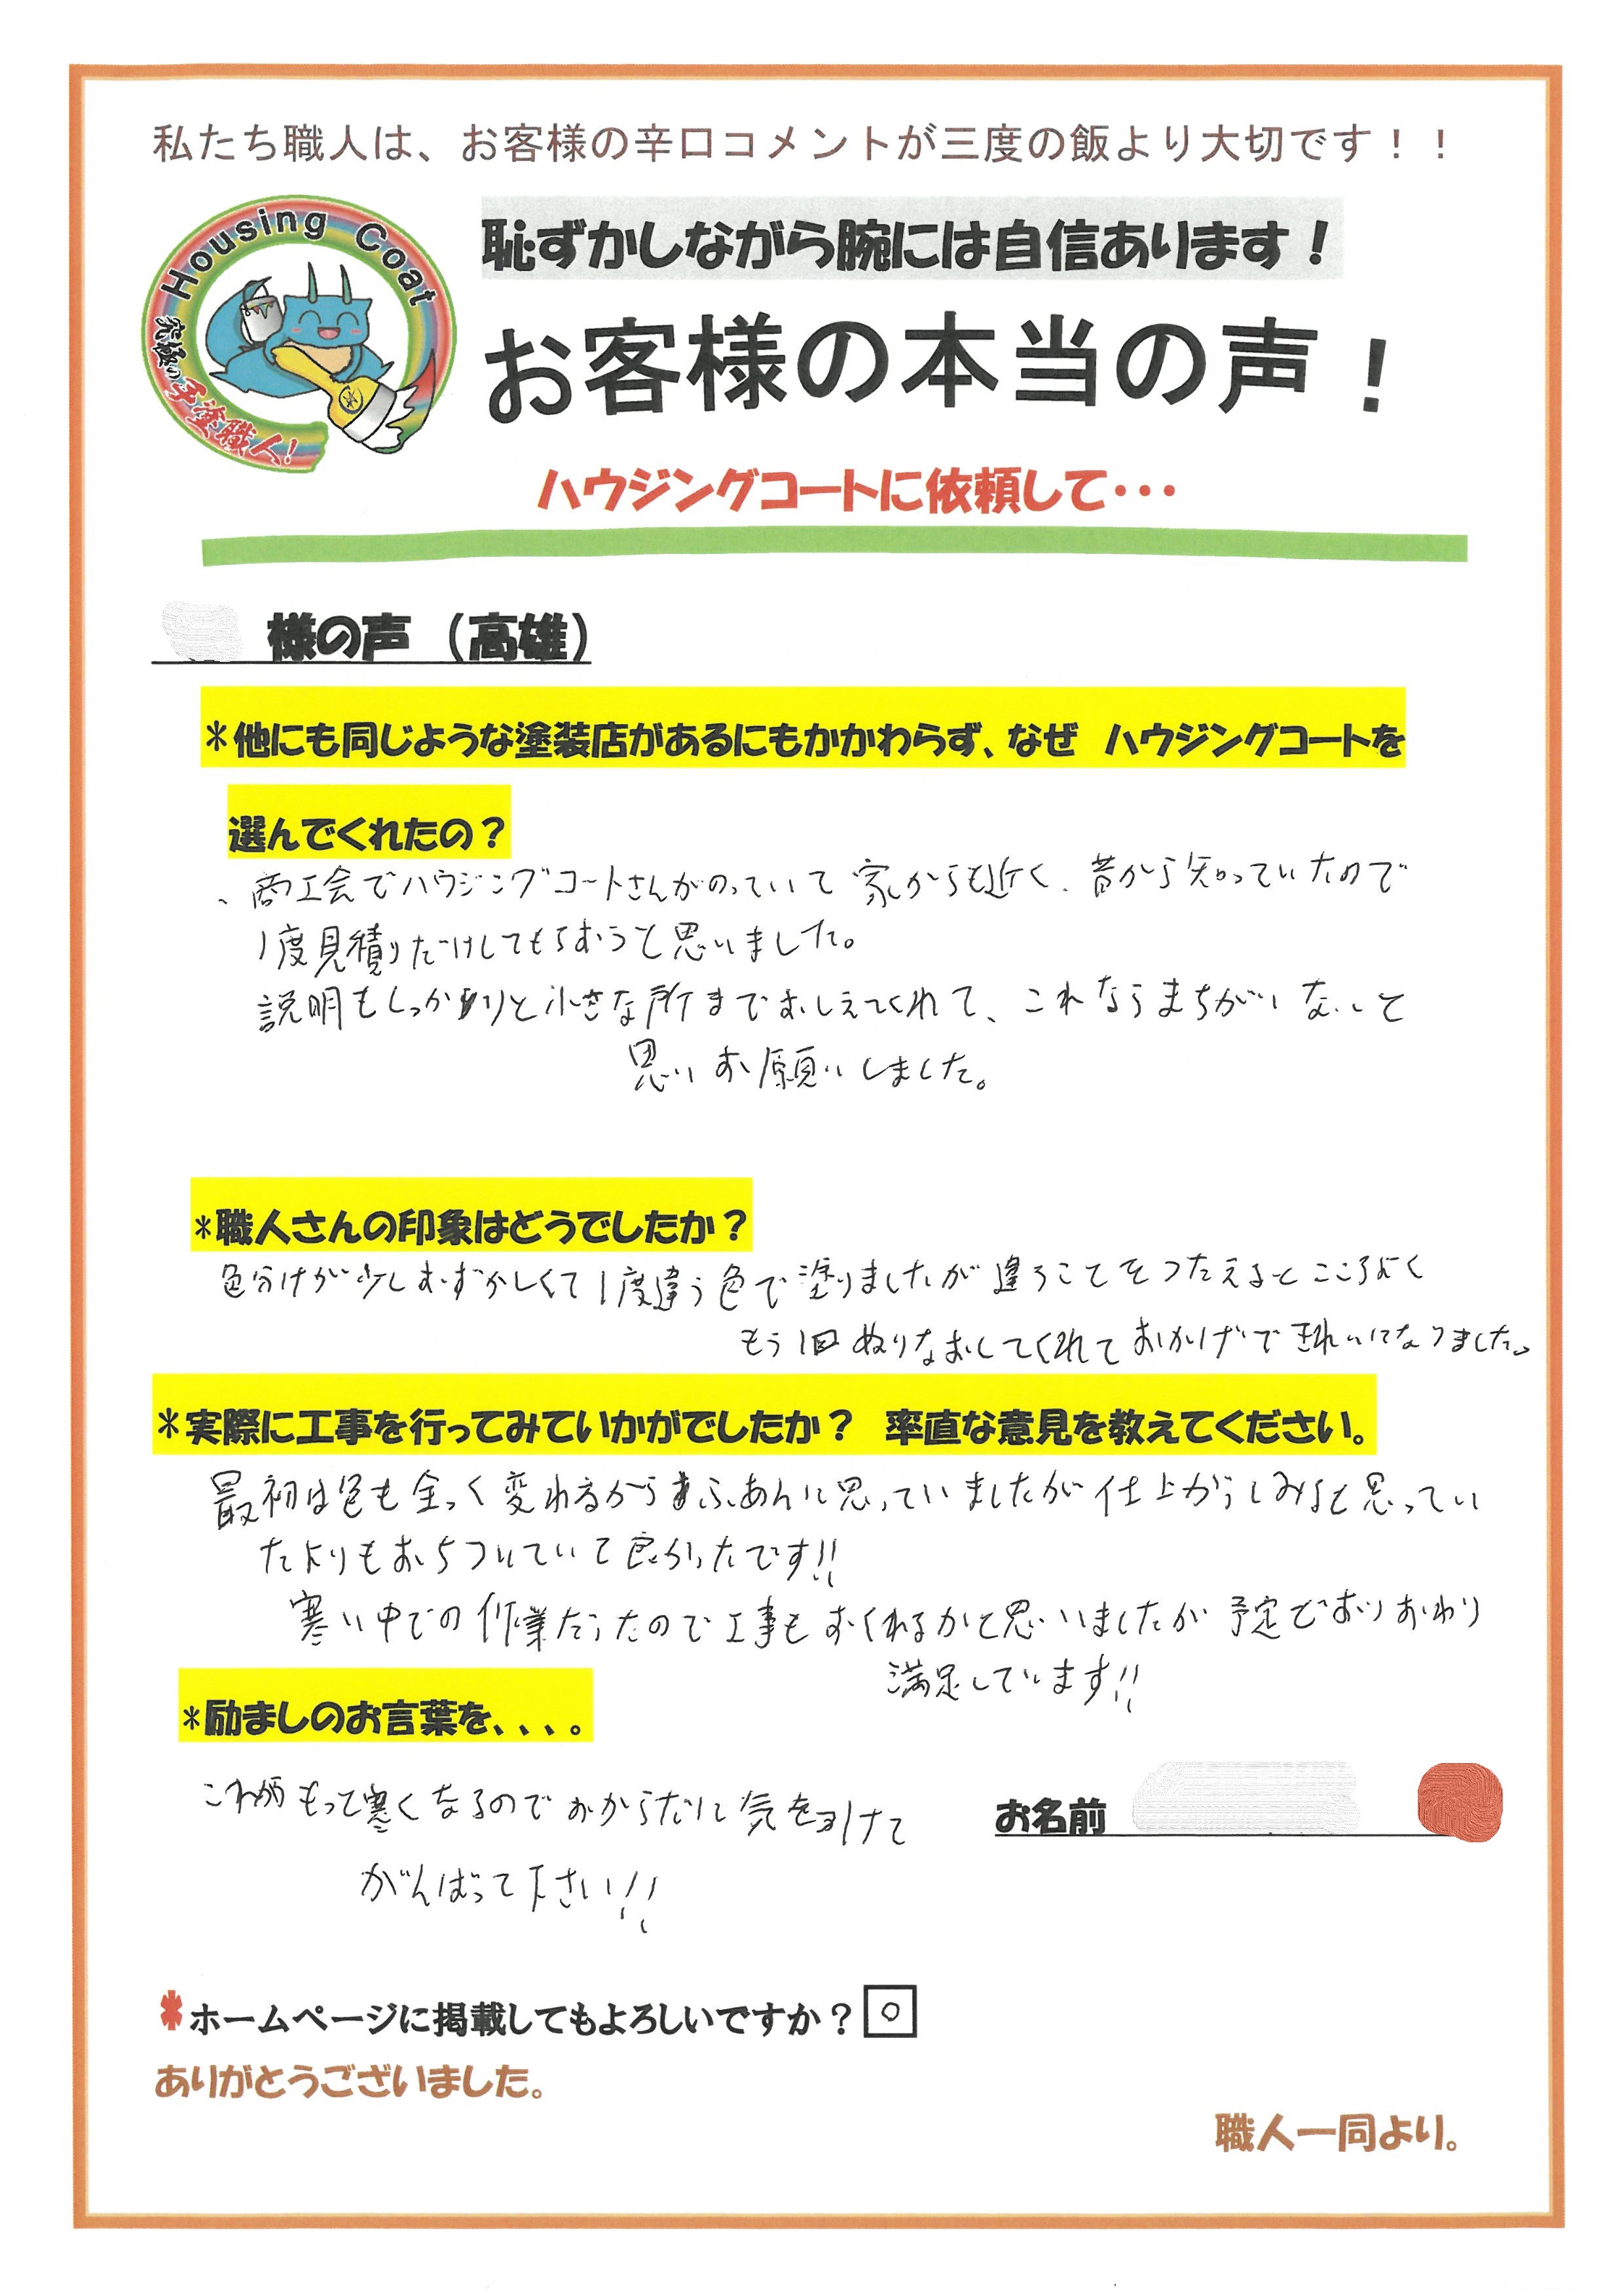 私たち職人は、お客様の辛口コメントが三度の飯より大切です！！
Housing Coat
究極の手塗職人!
恥ずかしながら腕には自信あります！
お客様の本当の声！
ハウジングコートに依頼して・・・
様の声（高雄）
＊他にも同じような塗装店があるにもかかわらず、なぜ ハウジングコートを
選んでくれたの？
、商工会でハウジングコートさんがのっていて家からも近く、昔から知っていたので
1度見積りだけしてもらおうと思いました。
説明もしっかりと小さな所までおしえてくれて、これならまちがいないと
思いお願いしました。
*職人さんの印象はどうでしたか？
色分けが少しむずかしくて1度違う色で塗りましたが違うことをつたえるとこころよく
もう1回ぬりなおしてくれておかげできれいになりました。
＊実際に工事を行ってみていかがでしたか？ 率直な意見を教えてください。
最初は色も全っく変わるからふあんに思っていましたが仕上がりみると思ってい
たよりもおちついていて良かったです!!
寒い中での作業だったので工事もおくれるかと思いましたが予定どおりおわり
満足しています!!
*励ましのお言葉を、、、。
もっと寒くなるのでおからだに気を付けて
がんばって下さい!!
お名前
*ホームページに掲載してもよろしいですか？ ○
ありがとうございました。
職人一同より。